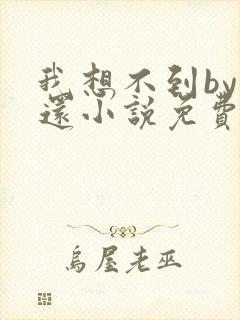 我想不到by
還小說免費
烏屋老巫